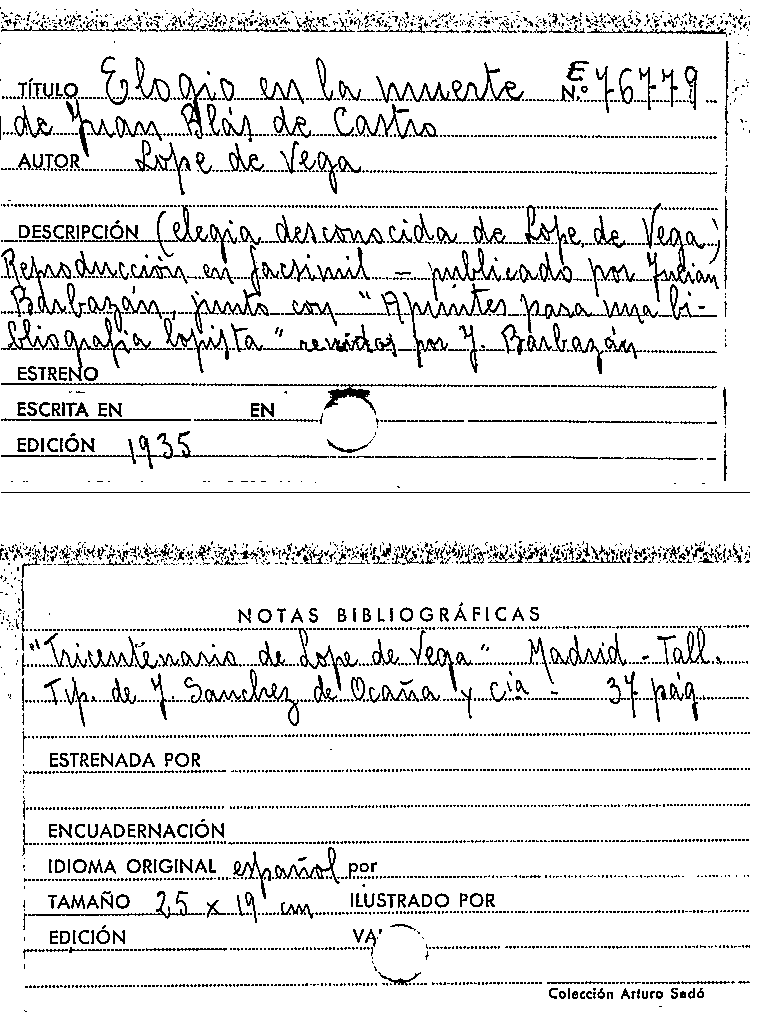 TÍTULO Elogio en la muerte E N.º 76779
de Juan Blás de Castro
AUTOR Lope de Vega
DESCRIPCIÓN (elegia desconocida de Lope de Vega)
Reproducción en facsimil - publicado por Julian
Barbazán, junto con "Apuntes para una bi-
bliografia lopista" reunidos por J. Barbazán
ESTRENO
ESCRITA EN EN
EDICIÓN 1935
NOTAS BIBLIOGRÁFICAS
"Tricentenario de Lope de Vega" Madrid - Tall.
Tip. de J. Sanchez de Ocaña y cia - 37 pág.
ESTRENADA POR
ENCUADERNACIÓN
IDIOMA ORIGINAL español por
TAMAÑO 25 x 19 cm ILUSTRADO POR
EDICIÓN
Colección Arturo Sedó